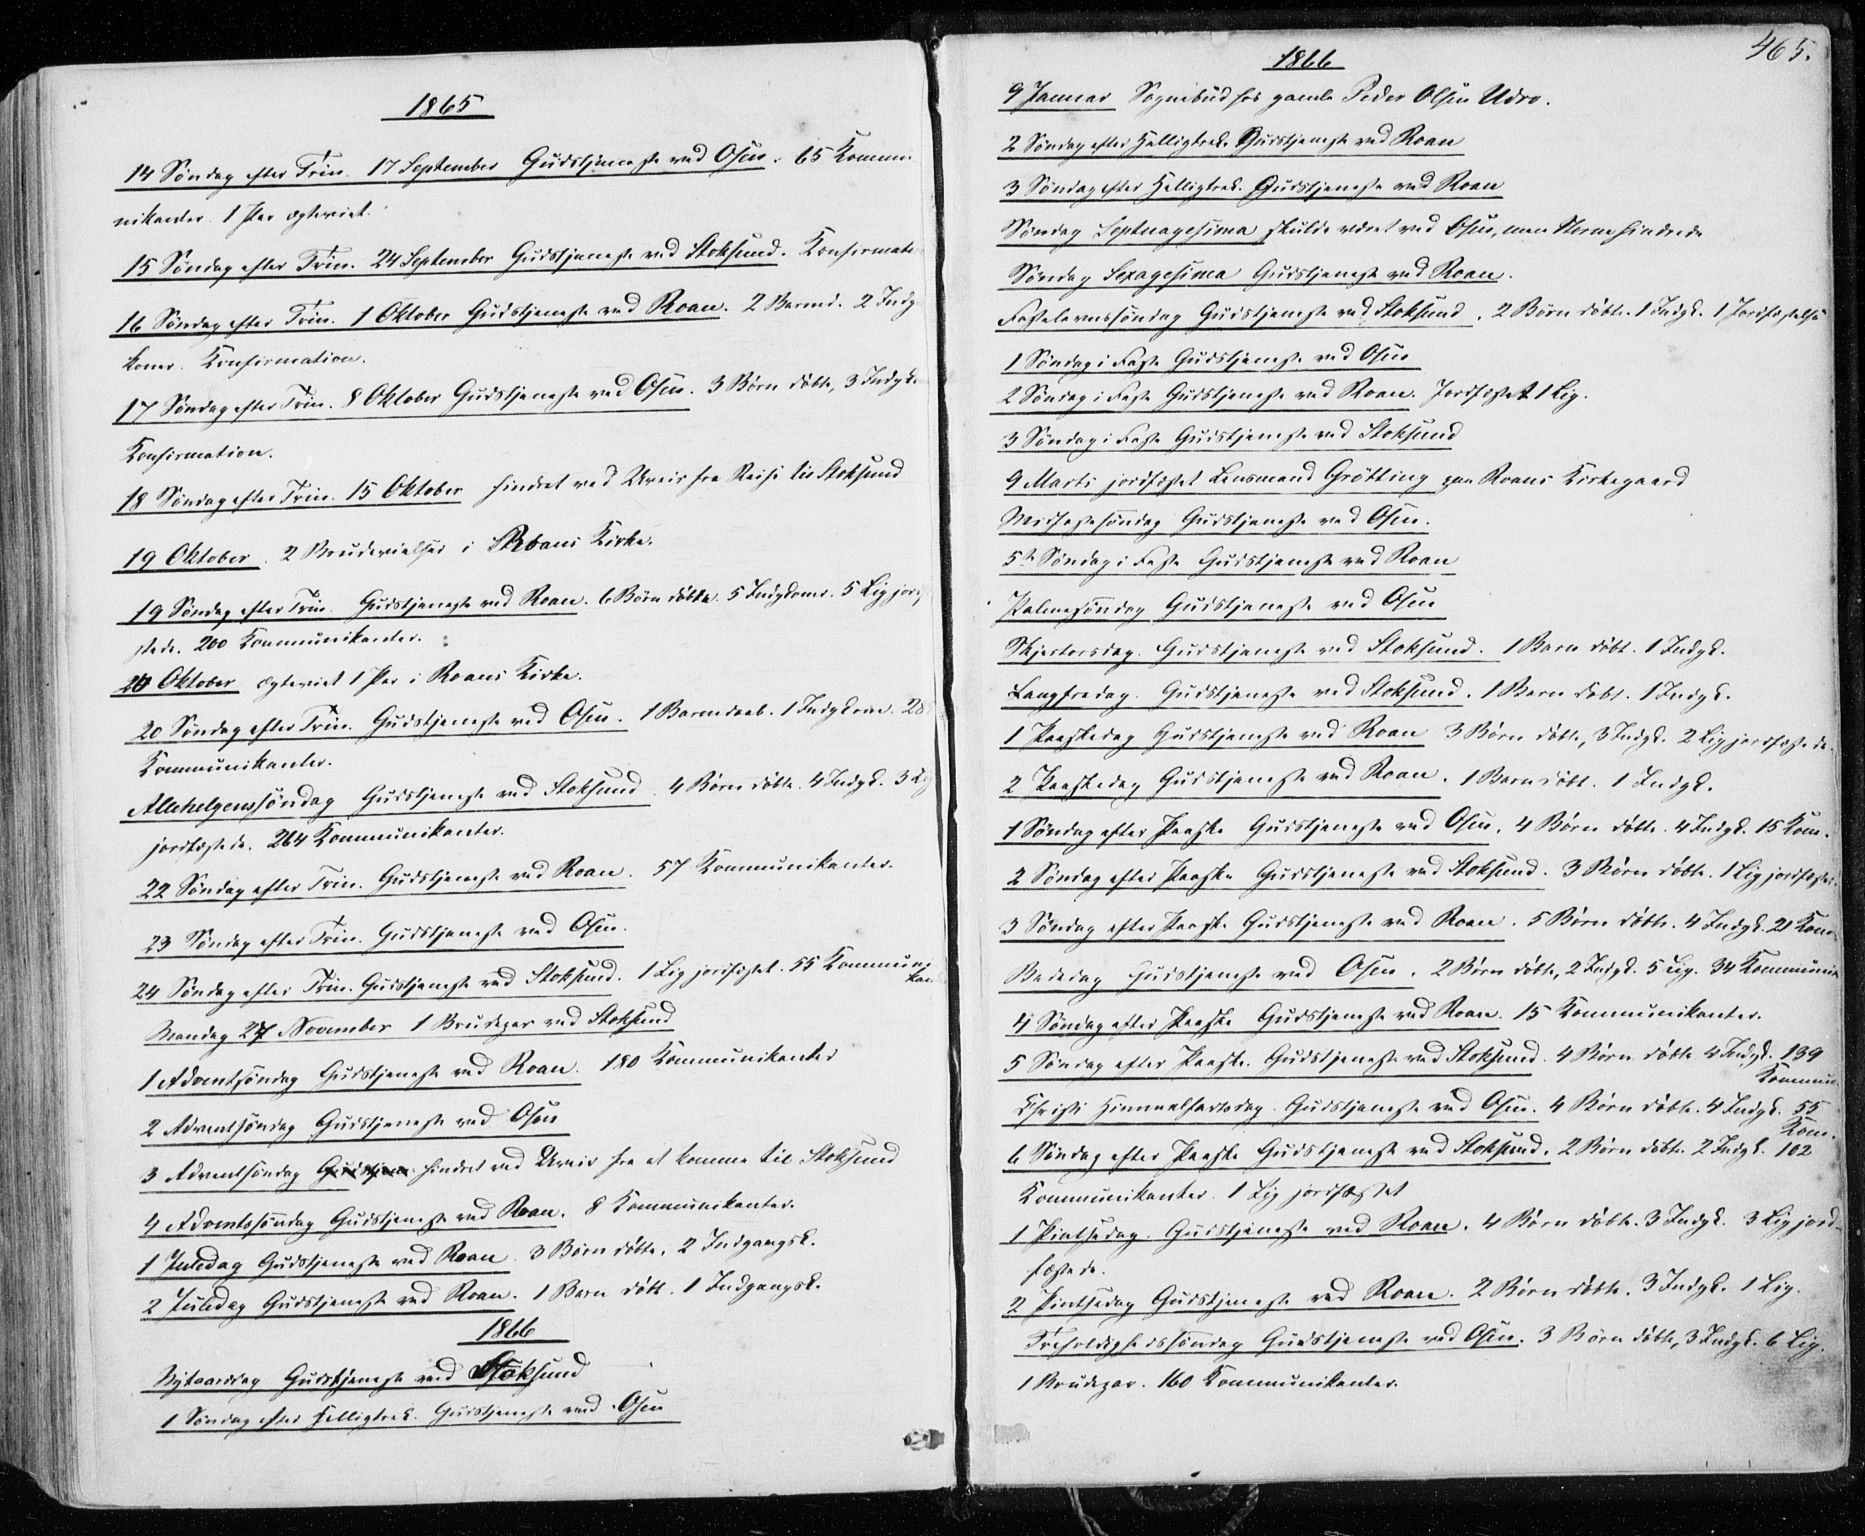 1865
14 Søndag efter Trin. 17 September Gudstjeneste ved Osen. 65 Kommu-
nikanter. 1 Par ægteviet.
15 Søndag efter Trin. 24 September Gudstjeneste ved Stoksund. Konfirmati
16 Søndag efter Trin. 1 Oktober Gudstjeneste ved Roan. 2 Barnd. 2 Indg
koner. Konfirmation.
17 Søndag efter Trin. 8 Oktober Gudstjeneste ved Osen. 3 Børn døbte, 3 Indgk.
Konfirmation.
18 Søndag efter Trin. 15 Oktober hindret ved Uveir fra Reise til Stoksund
19 Oktober. 2 Brudevielser i Roans Kirke.
19 Søndag efter Trin. Gudstjeneste ved Roan. 6 Børn døbte. 5 Indgkoner. 5 Lig jordfæ
stede. 200 Kommunikanter.
Oktober ægteviet 1 Par i Roans Kirke.
20 Søndag efter Trin. Gudstjeneste ved Osen. 1 Barnedaab. 1 Indgkone. 28
Kommunikanter.
Allehelgenssøndag Gudstjeneste ved Stoksund. 4 Børn døbte. 4 Indgk. 3 Lig
jordfæstede. 264 Kommunikanter.
22 Søndag efter Trin. Gudstjeneste ved Roan. 57 Kommunikanter.
23 Søndag efter Trin. Gudstjeneste ved Osen.
24 Søndag efter Trin. Gudstjeneste ved Stoksund. 1 Lig jordfæstet. 55 Kommuni
kan
Mandag 27 November 1 Brudepar ved Stoksund
1 Adventsøndag Gudstjeneste ved Roan. 180 Kommunikanter
2 Adventsøndag Gudstjeneste ved Osen
3 Adventsøndag Gudstjen hindret ved Uveir fra at komme til Stoksund
4 Adventssøndag Gudstjeneste ved Roan. 8 Kommunikanter.
1 Juledag Gudstjeneste ved Roan. 3 Børn døbte. 2 Indgangsk.
2 Juledag Gudstjeneste ved Roan. 1 Barn døbt. 1 Indgangsk.
1866
Nytaarsdag Gudstjeneste ved Stoksund
1 Søndag efter Helligtrek. Gudstjeneste ved Osen
465.
1866
9 Januar Sognebud hos gamle Peder Olsen Udro.
2 Søndag efter Helligtrek. Gudstjeneste ved Roan
3 Søndag efter Helligtrek. Gudstjeneste ved Roan
Søndag Septuagesima skulde været ved Osen, men Storm hindrede
Søndag Sexagesima Gudstjeneste ved Roan.
Fastelavnssøndag Gudstjeneste ved Stoksund. 2 Børn døbte. 1 Indgk. 1 Jordfæstelse
1 Søndag i Faste Gudstjeneste ved Osen
2 Søndag i Faste Gudstjeneste ved Roan. Jordfæstet 1 Lig.
3 Søndag i Faste Gudstjeneste ved Stoksund
9 Marts jordfæstet Lensmand Grøtting paa Roans Kirkegaard
Midfastesøndag Gudstjeneste ved Osen.
5te Søndag i Faste Gudstjeneste ved Roan
Palmesøndag Gudstjeneste ved Osen
Skjertorsdag. Gudstjeneste ved Stoksund. 1 Barn døbt. 1 Indgk.
Langfredag. Gudstjeneste ved Stoksund. 1 Barn døbt. 1 Indgk.
1 Paaskedag Gudstjeneste ved Roan 3 Børn døbte, 3 Indgk. 2 Lig jordfæstede.
2 Paaskedag Gudstjeneste ved Roan. 1 Barn døbt. 1 Indgk.
1 Søndag efter Paaske Gudstjeneste ved Osen. 4 Børn døbte. 4 Indgk. 15 Kom.
2 Søndag efter Paaske Gudstjeneste ved Stoksund. 3 Børn døbte. 1 Lig jordfæstet.
3 Søndag efter Paaske Gudstjeneste ved Roan. 5 Børn døbte. 4 Indgk. 21 Kom.
Bededag Gudstjeneste ved Osen. 2 Børn døbte, 2 Indgk. 5 Lig. 34 Kommunik
4 Søndag efter Paaske Gudstjeneste ved Roan. 15 Kommunikanter.
5 Søndag efter Paaske. Gudstjeneste ved Stoksund. 4 Børn døbte 4 Indgk. 139
Kommun.
Christi Himmelfartsdag. Gudstjeneste ved Osen. 4 Børn døbte. 4 Indgk. 55
Kom.
6 Søndag efter Paaske Gudstjeneste ved Stoksund. 2 Børn døbte. 2 Indgk. 102
Kommunikanter. 1 Lig jordfæstet
1 Pintsedag. Gudstjeneste ved Roan. 4 Børn døbte. 3 Indgk. 3 Lig jord-
fæstede.
2 Pintsedag Gudstjeneste ved Roan. 2 Børn døbte. 3 Indgk. 1 Lig.
Trefoldighedssøndag Gudstjeneste ved Osen. 3 Børn døbte, 3 Indgk. 6 Lig.
1 Brudepar. 160 Kommunikanter.